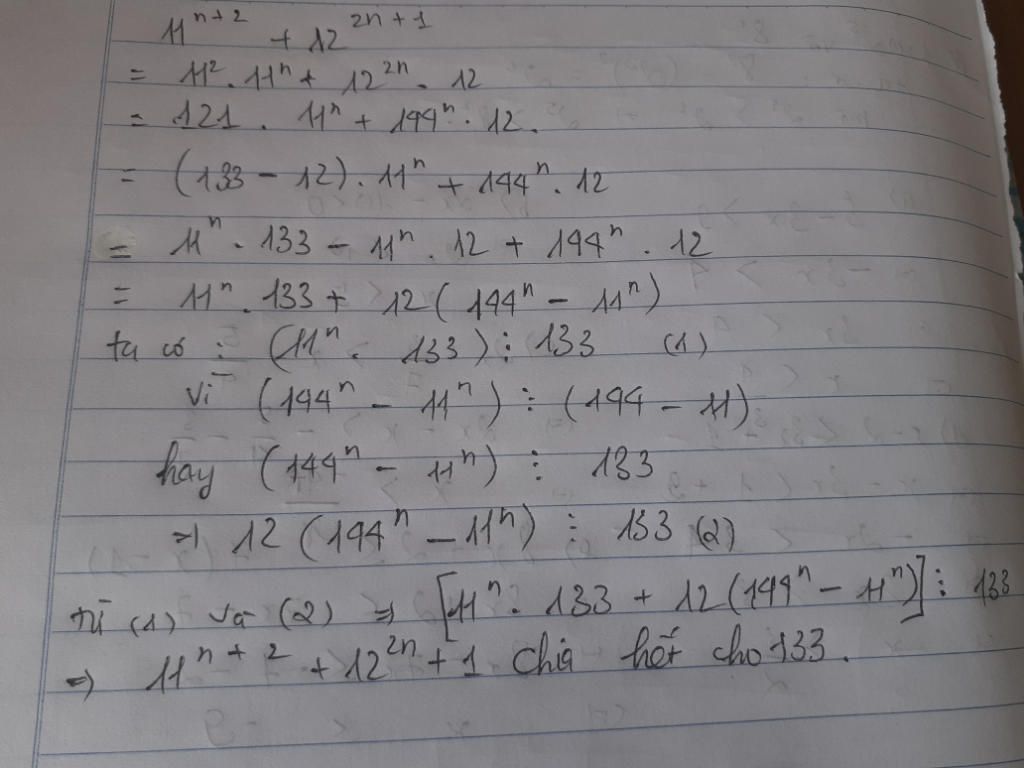 11ⁿ⁺² + 12²ⁿ⁺¹
= 11² . 11ⁿ + 12²ⁿ . 12
= 121 . 11ⁿ + 144ⁿ . 12.
= (133 - 12) . 11ⁿ + 144ⁿ . 12
= 11ⁿ . 133 - 11ⁿ . 12 + 144ⁿ . 12
= 11ⁿ . 133 + 12 (144ⁿ - 11ⁿ)
ta có : (11ⁿ . 133) ⋮ 133 (1)
vì (144ⁿ - 11ⁿ) ⋮ (144 - 11)
hay (144ⁿ - 11ⁿ) ⋮ 133
⇒ 12 (144ⁿ - 11ⁿ) ⋮ 133 (2)
từ (1) và (2) ⇒ [11ⁿ . 133 + 12 (144ⁿ - 11ⁿ)] ⋮ 133
⇒ 11ⁿ⁺² + 12²ⁿ + 1 chia hết cho 133.